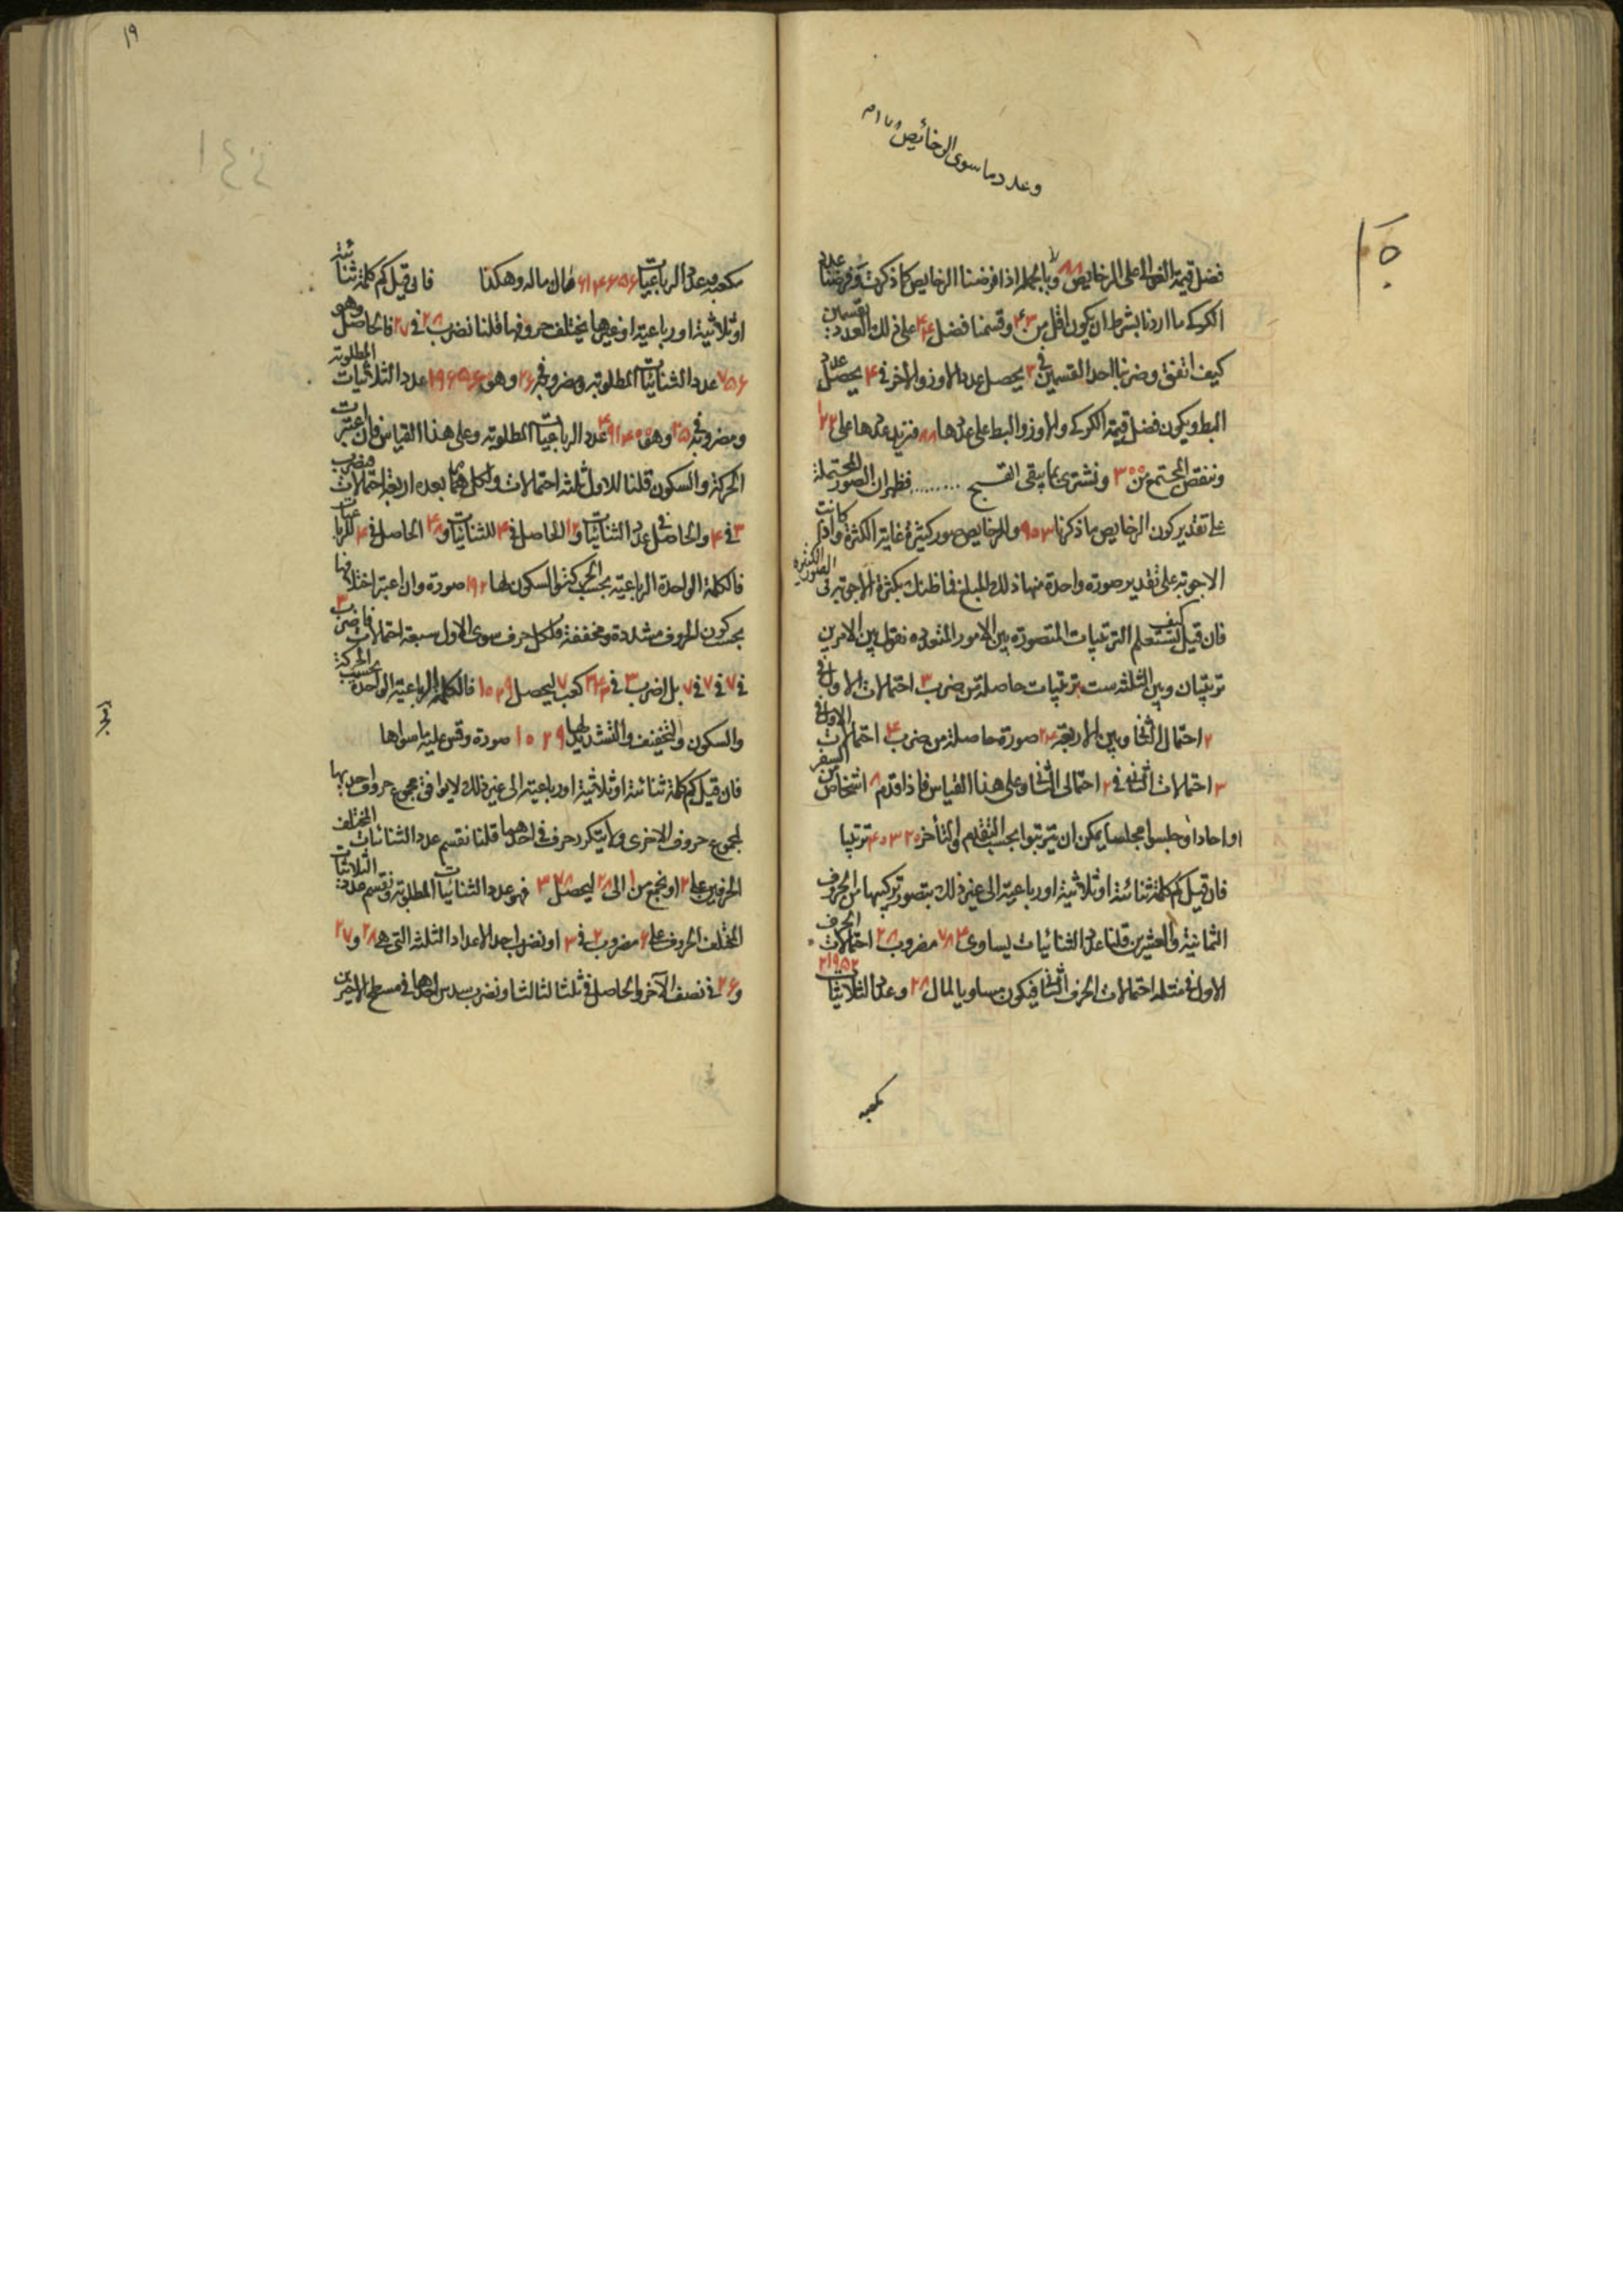 وعدد ما سوى الرخائص
فضل قيمة الغوالى على الرخايص ٨٨ وبالجملة اذا فرضنا الرخايص كما ذكرت وفرضنا عدد
الكركى ما اردنا بشرط ان يكون اقل من ٤٣ وقسمنا فضل ٤٤ على ذلك العدد بقسمين
كيف اتفق وضربنا احد القسمين فى ٣ يحصل عدد الاوز والاخر فى ٤ يحصل عدد
البط ويكون فضل قيمة الكركى والاوز والبط على عددها ٨٨ فنزيد عددها على ١٢٢
وننقص المجتمع من ٣٠٠ ونشترى بما يبقى القبج ......... فظهر ان الصور المحتملة
على تقدير كون الرخايص ما ذكرنا ٩٥٣ وللرخايص صور كثيرة غاية الكثرة واذا كانت
الاجوبة على تقدير صورة واحدة منها ذلك المبلغ فما ظنك بكثرة الاجوبة فى الصور الكثيرة
فان قيل كيف تستعلم الترتيبات المتصورة بين الامور المتعددة نقول بين الامرين
ترتيبان وبين الثلثة ست ترتيبات حاصلة من ضرب ٣ احتمالات الاول فى
٢ احتمالى الثانى وبين الاربعة ٢٤ صورة حاصلة من ضرب ٤ احتمالات الاول فى
٣ احتمالات الثانى فى ٢ احتمالى الثالث وعلى هذا القياس فاذا قدم ٨ اشخاص من السفر
او احادا وجلسوا مجلسا يمكن ان يترتبوا بحسب التقدم والتأخر ٤٠٣٢٠ ترتيبا
فان قيل كم كلمة ثنائية او ثلاثية او رباعية الى غير ذلك يتصور تركيبها من الحروف
الثمانية والعشرين قلنا عدد الثنائيات يساوى ٧٨٤ مضروب ٢٨ احتمالات الحرف
الاول فى مثله احتمالات الحرف الثانى فيكون مساويا لمال ٢٨ وعدد الثلاثيات ٢١٩٥٢
مكعبه
١٩
مكعبه وعدد الرباعيات ٦١٤٦٥٦ مال ماله وهكذا فان قيل كم كلمة ثنائية
او ثلاثية او رباعية او غيرها يختلف حروفها قلنا نضرب ٢٨ فى ٢٧ فالحاصل وهو
٧٥٦ عدد الثنائيات المطلوبة ومضروبه فى ٢٦ وهو ١٩٦٥٦ عدد الثلاثيات المطلوبة
ومضروبه فى ٢٥ وهو ٤٩١٤٠٠ عدد الرباعيات المطلوبة وعلى هذا القياس فان اعتبرت
الحركة والسكون قلنا للاول ثلثة احتمالات ولكل مما بعده اربعة احتمالات فنضرب
٣ فى ٤ والحاصل فى عدد الثنائيات و١٢ الحاصل فى ٤ للثنائيات و٤٨ الحاصل فى ٤ للرباعيات
فالكلمة الواحدة الرباعية بحسب الحركة والسكون لها ١٩٢ صورة وان اعتبر اختلافها
بحسب كون الحروف مشددة ومخففة فلكل حرف سوى الاول سبعة احتمالات فاضرب ٣
فى ٧ فى ٧ فى ٧ بل اضرب ٣ فى ٣٤٣ كعب ٧ ليحصل ١٠٢٩ فالكلمة الرباعية الواحدة بحسب الحركة
والسكون والتخفيف والتشديد لها ١٠٢٩ صورة وقس عليه ما سواها
فان قيل كم كلمة ثنائية او ثلاثية او رباعية الى غير ذلك لا يوافق مجموع حروف احديها
لمجموع حروف الاخرى ولا يتكرر حرف فى احدهما قلنا نقسم عدد الثنائيات المختلف
الحرفين على ٢ او نجمع من ١ الى ٢٨ ليحصل ٣٧٨ فهو عدد الثنائيات المطلوبة ونقسم عدد الثلاثيات
المختلف الحروف على ٦ مضروب ٢ فى ٣ او نضرب احد الاعداد الثلثة التى هى ٢٨ و٢٧
و٢٦ فى نصف الآخر والحاصل فى ثلث الثالث او نضرب سدس احدها فى مسطح الاخرين